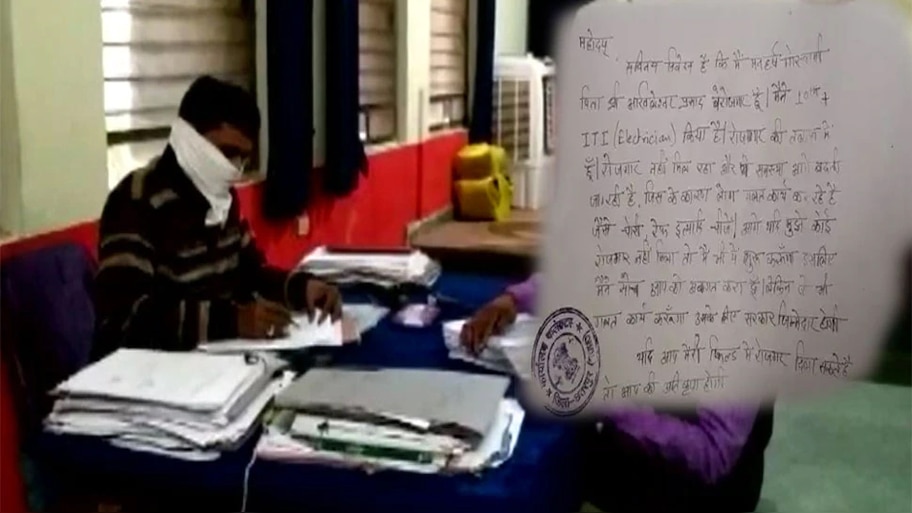 महोदय,
सविनय निवेदन है कि मैं मनहर्ष गोस्वामी
पिता श्री प्रसाद बेरोजगार हूँ। मैंने 10th +
ITI (Electrician) किया है। रोजगार की तलाश में
हूँ। रोजगार नहीं मिल रहा और समस्या आगे बढ़ती
जा रही है, जिस के कारण लोग गलत कार्य कर रहे है
जैसे चोरी, रेप इत्यादि चीजें। आगे यदि मुझे कोई
रोजगार नहीं मिला तो मैं भी ये शुरू करूँगा इसलिए
मैंने सोचा आप को अवगत करा दूँ। लेकिन में जो
गलत कार्य करूँगा उसके लिए सरकार जिम्मेदार होगी
यदि आप मेरी फिल्ड में रोजगार दिला सकते है
तो आप की अति कृपा होगी
कार्यालय कलेक्टर
जिला-छतरपुर